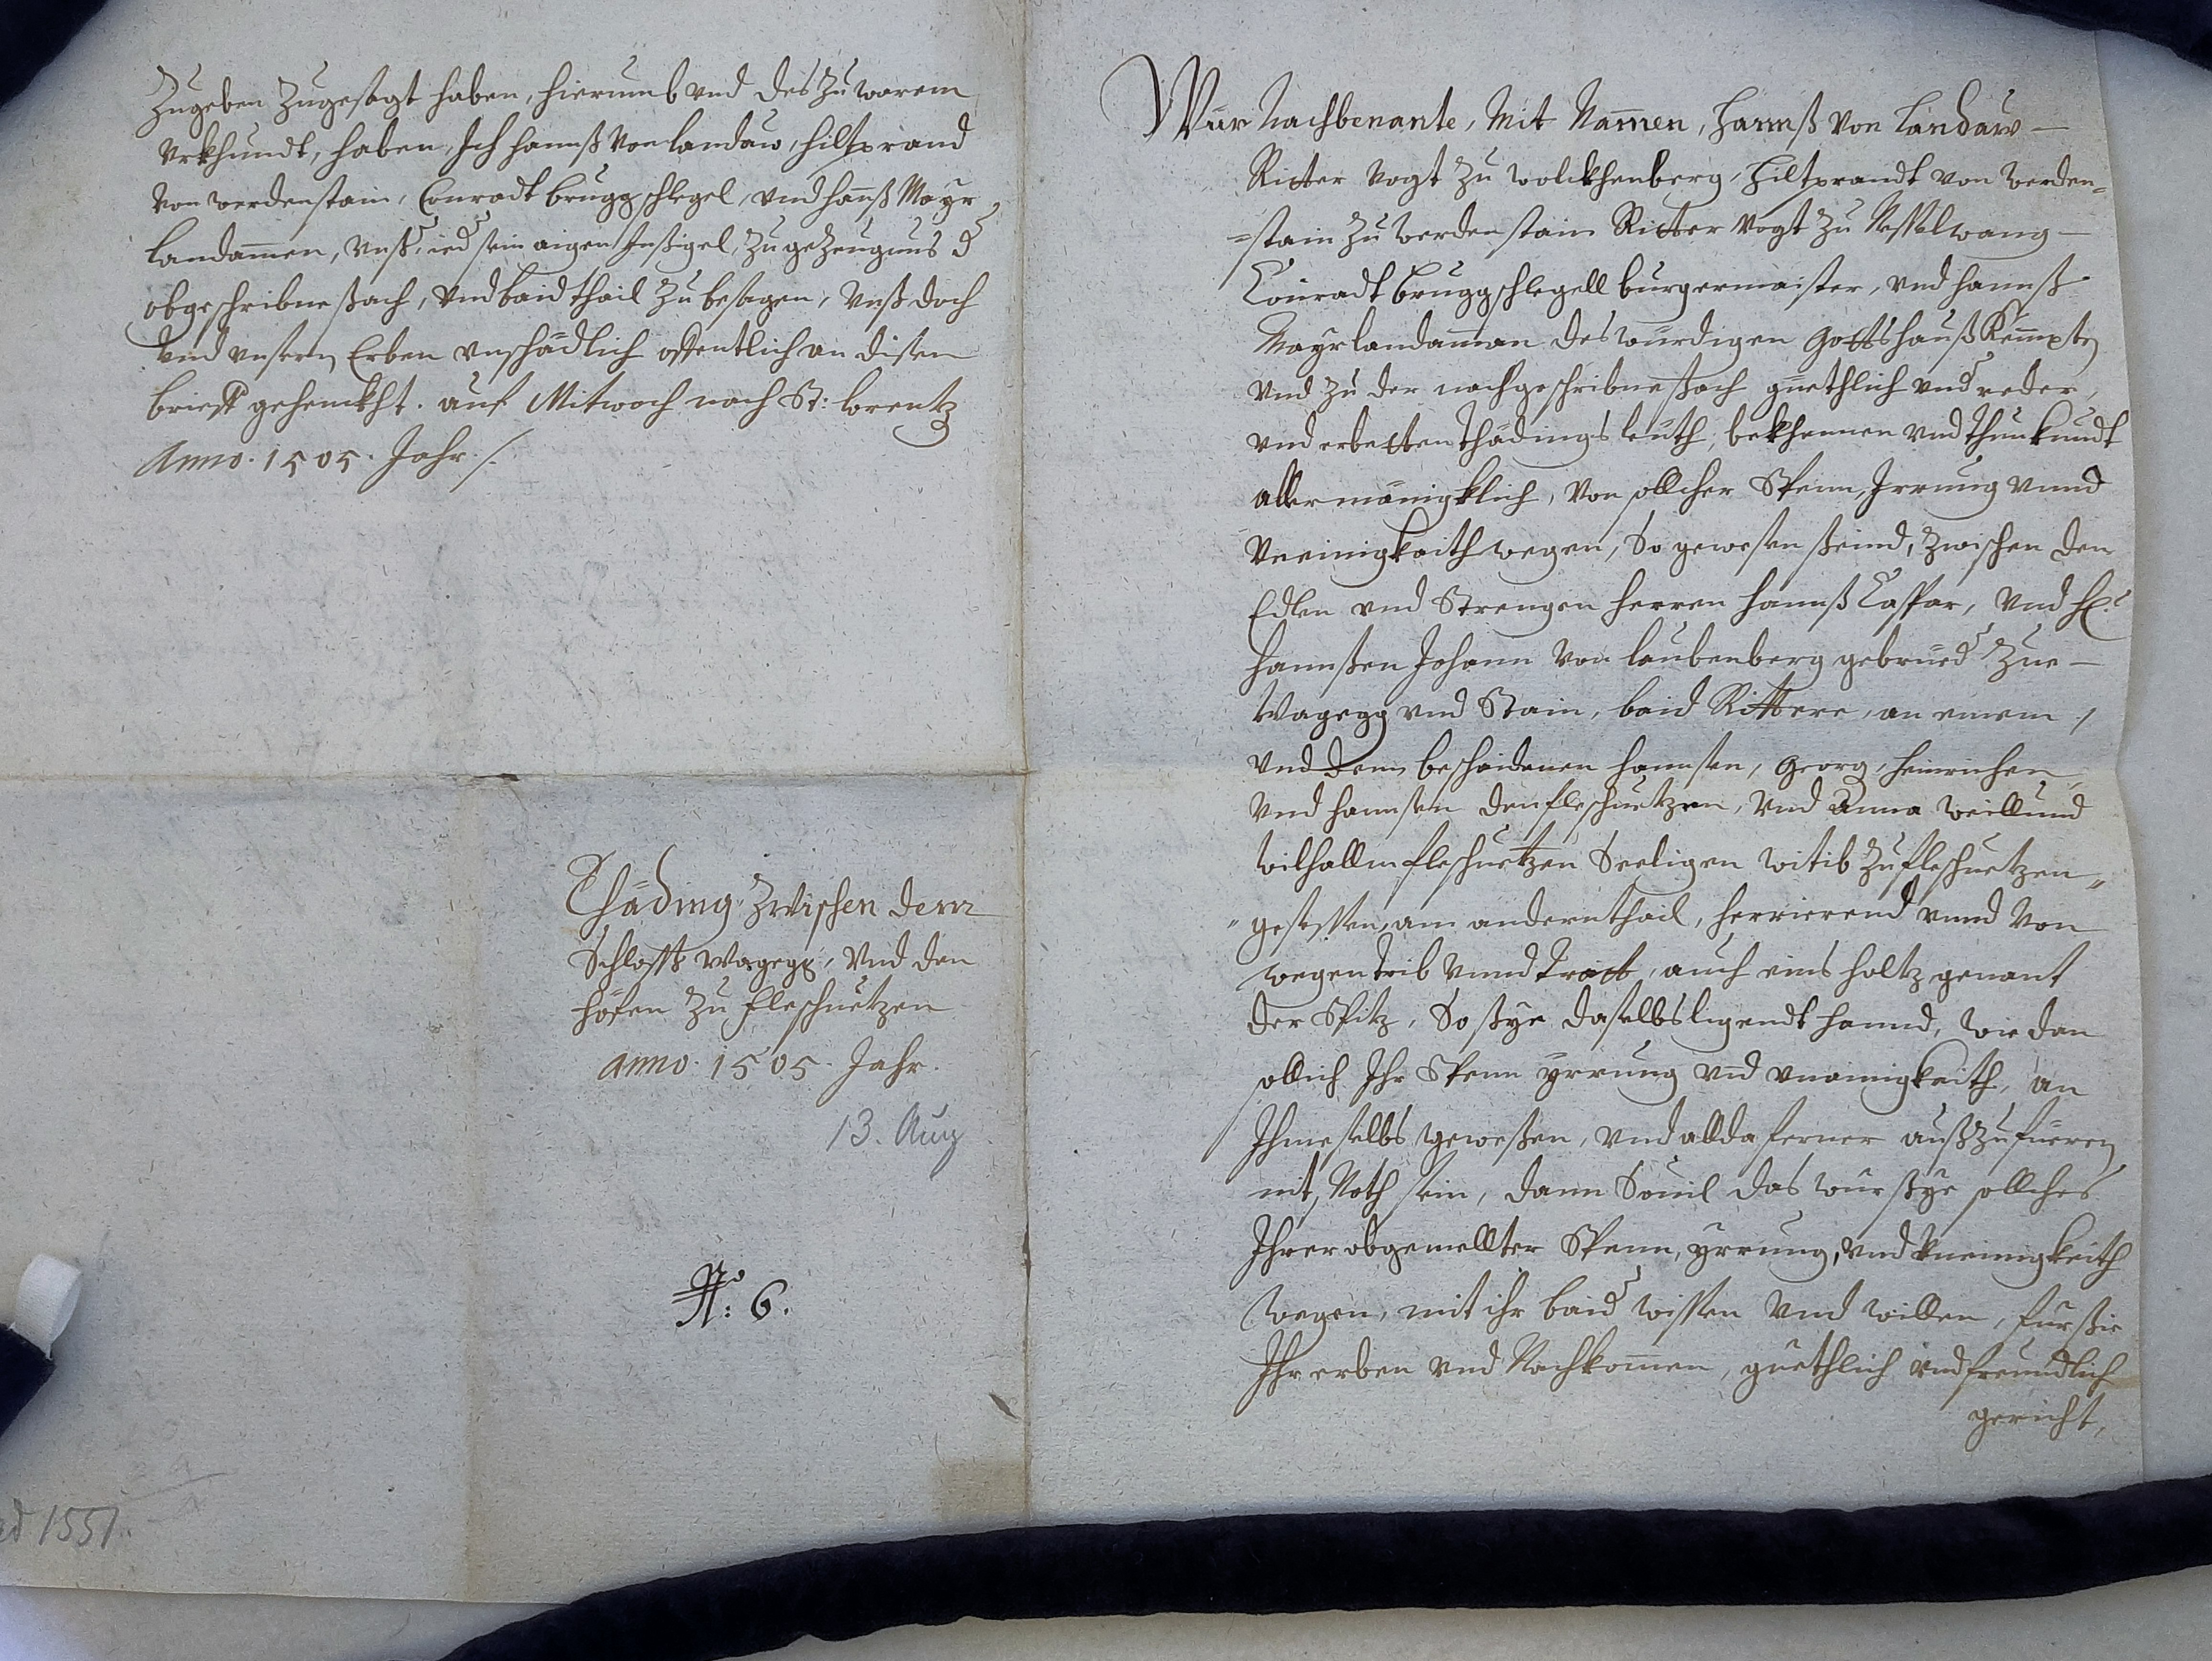 Zugeben Zugesagt haben, hierumb vnd des zu warem
Vrkhundt, haben, Ich hannß von landaw, hiltprand
von werdenstain, Conradt bruggschlegel, vnd hannß Mayr
landamen, vnser ieder sein aigen Insigel, zu gezeugnus der
obgeschribne sach, vnd baid thail zu besagen, vnß doch
vnd vnsern Erben vnschädlich offentlich an disen
brieff gehenckht. auf Mitwoch nach St: lorentz
Anno. 1505. Jahr ./.
Thäding zwischen dem
Schloss Wagegg, Vnd den
höfen zu fleschuetzen
anno. 1505. Jahr.
13. Aug
No: 6.
ad 1551.
Wür Nachbenante, Mit Namen, Hannß von Landaw –
Ritter Vogt zu wolckhenberg, Hiltprandt von Werden=
=stain zu Werdenstain Ritter Vogt zu Nesselwang –
Conradt Bruggschlegell burgermaister, vnd hannß
Mayr landaman des würdigen Gottshauß Kempten
vnd zu der nachgeschribne sach guethlich vnd reder,
vnd erbetten thädings leüth, bekhennen vnd thun kundt
aller mänigklich, von sollcher Spenn, Irrung vnnd
Vneinigkaith wegen, So gewesen seind, zwischen den
Edlen vnd Strengen herren hannß Caspar, vnd H:
hannßen Johann von laubenberg gebrueder zue –
Wagegg vnd Stain, baid Rittere, an einem /
vnd dem beschaidenen hannsen, Georg, heinrichen
vnd hannsen den fleschuetzen, vnd Anna weillund
wilhallm fleschuetzen Seeligen witib zu fleschuetzen "
" gesessen, am andern thail, herrierend vnnd von
wegen trib vnnd tratt, auch eins holtz genant
der Spitz, So sye daselbs ligendt hannd, wie dan
sollich Ihr Spenn yrrung vnd vnainigkeith, an
Ihme selbs gewesen, vnd allda ferner außzufüeren
nit Noth sein, dann Souil das wür sye sollches
Ihrer obgemellter Spenn, yrrung, vnd Vneinigkeith
wegen, mit ihr baider wissen vnd willen, für sie
Ihr erben vnd Nachkomen, guethlich vnd freundlich
gericht,